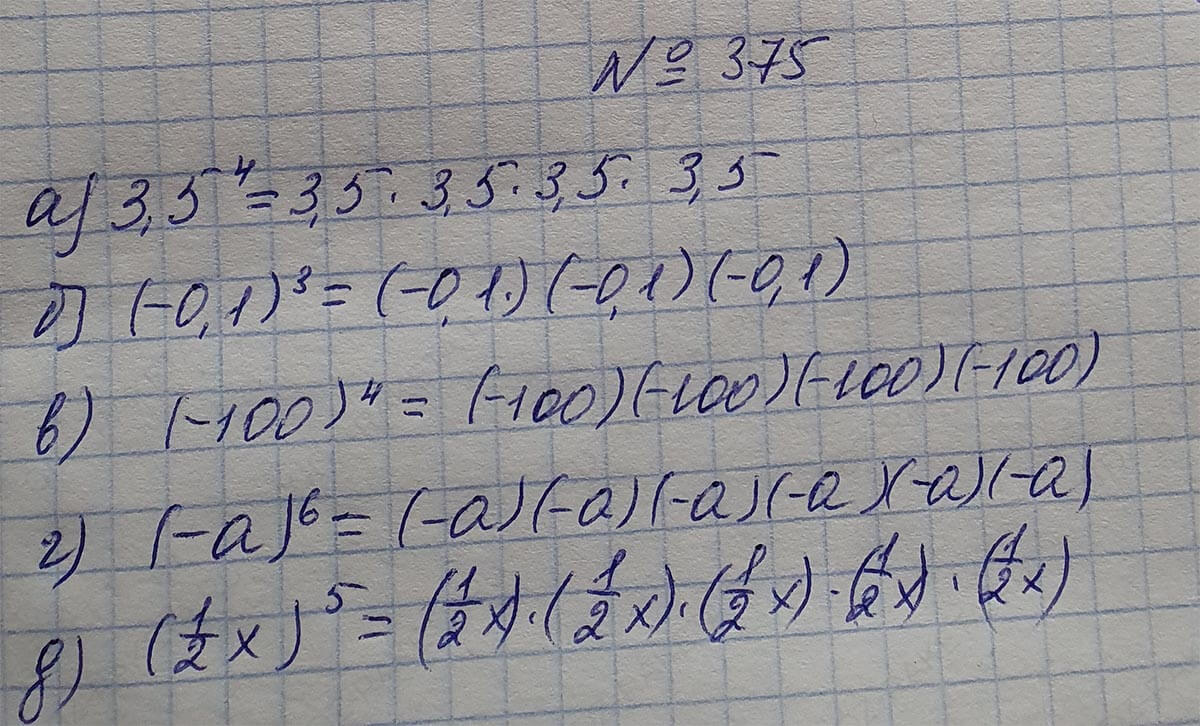 № 375
а) 3,5⁴ = 3,5 · 3,5 · 3,5 · 3,5
б) (-0,1)³ = (-0,1.) (-0,1) (-0,1)
в) (-100)⁴ = (-100)(-100)(-100)(-100)
г) (-а)⁶ = (-а)(-а)(-а)(-а)(-а)(-а)
д) (1/2 x)⁵ = (1/2 x) · (1/2 x) · (1/2 x) · (1/2 x) · (1/2 x)